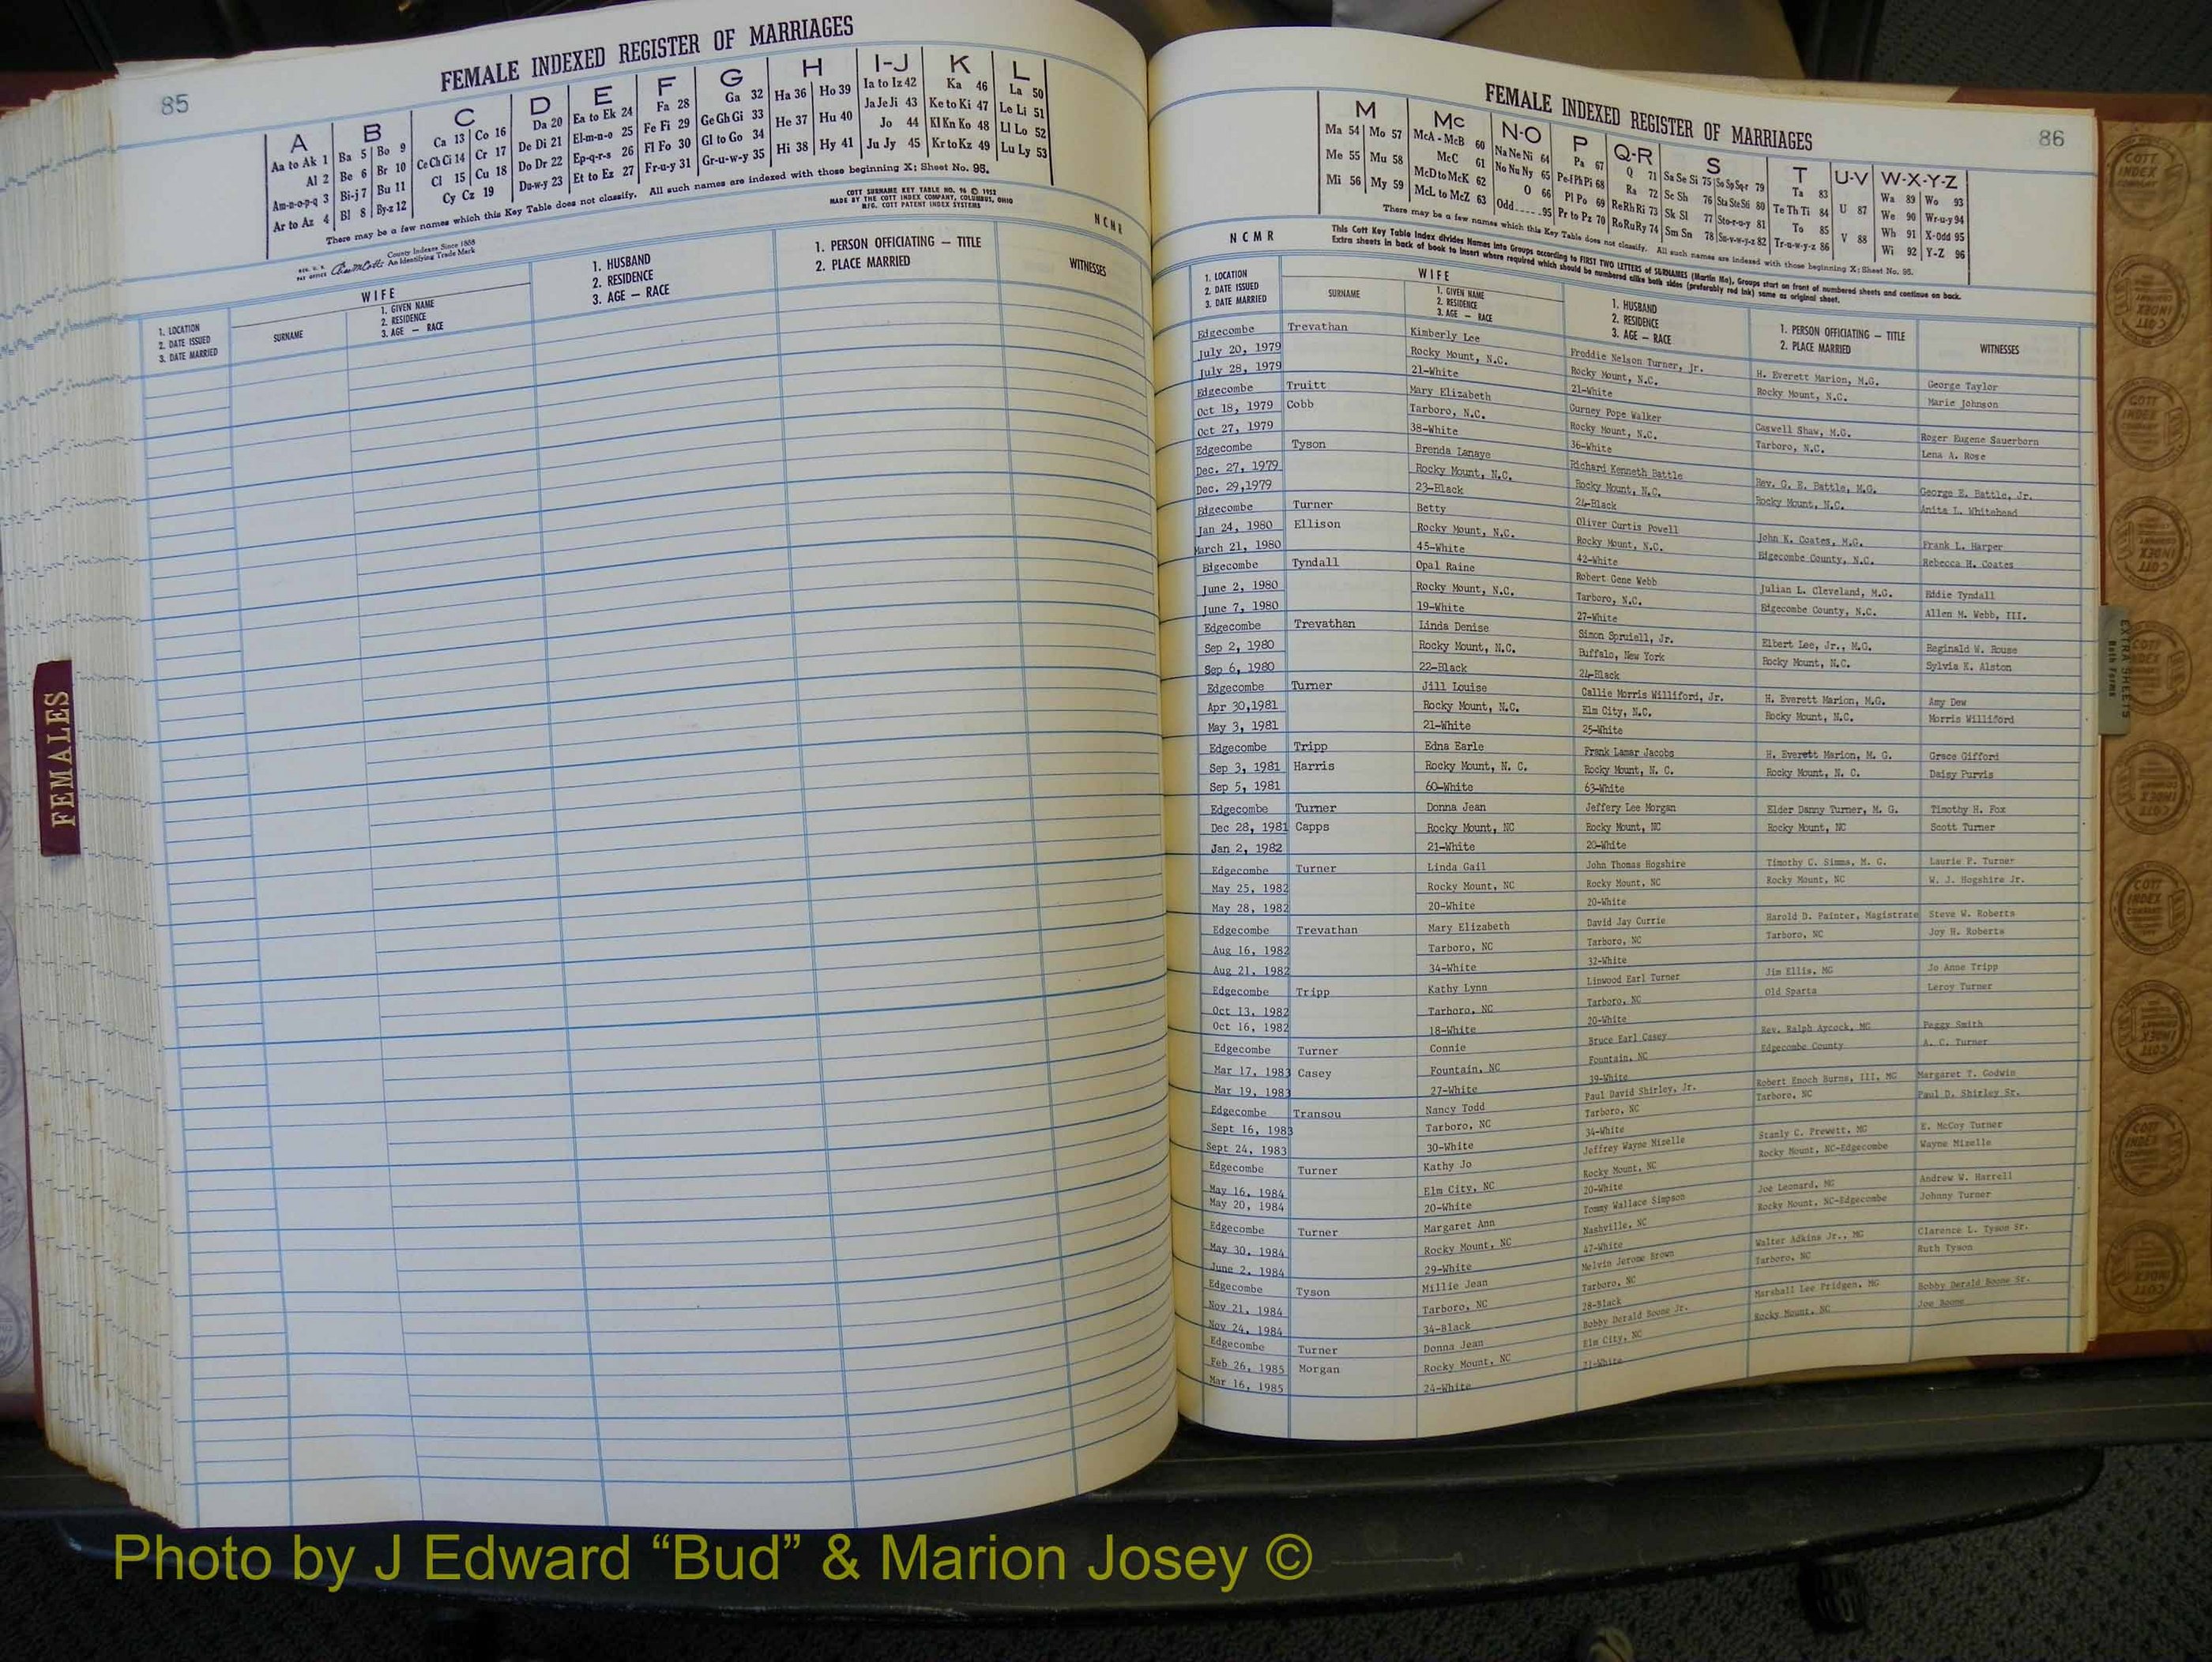 85
FEMALE INDEXED REGISTER OF MARRIAGES
A B C D E F G H I-J K L
Aa to Ak 1 Ba 5 Bo 9 Ca 13 Co 16 Da 20 Ea to Ek 24 Fa 28 Ga 32 Ha 36 Ho 39 Ia to Iz 42 Ka 46 La 50
Al 2 Be 6 Br 10 Ce Ch Ci 14 Cr 17 De Di 21 El-m-n-o 25 Fe Fi 29 Ge Gh Gi 33 He 37 Hu 40 Ja Je Ji 43 Ke to Ki 47 Le Li 51
Am-n-o-p-q 3 Bi-j 7 Bu 11 Cl 15 Cu 18 Do Dr 22 Ep-q-r-s 26 Fl Fo 30 Gl to Go 34 Hi 38 Hy 41 Jo 44 Kl Kn Ko 48 Ll Lo 52
Ar to Az 4 Bl 8 By-z 12 Cy Cz 19 Du-w-y 23 Et to Ez 27 Fr-u-y 31 Gr-u-w-y 35 Ju Jy 45 Kr to Kz 49 Lu Ly 53
There may be a few names which this Key Table does not classify. All such names are indexed with those beginning X; Sheet No. 95.
COTT SURNAME KEY TABLE NO. 96 © 1952
MADE BY THE COTT INDEX COMPANY, COLUMBUS, OHIO
MFG. COTT PATENT INDEX SYSTEMS
County Indexes Since 1888
An Identifying Trade Mark
NCMR
1. LOCATION
2. DATE ISSUED
3. DATE MARRIED
WIFE
SURNAME
1. GIVEN NAME
2. RESIDENCE
3. AGE — RACE
1. HUSBAND
2. RESIDENCE
3. AGE — RACE
1. PERSON OFFICIATING — TITLE
2. PLACE MARRIED
WITNESSES
FEMALES
86
FEMALE INDEXED REGISTER OF MARRIAGES
M Mc N-O P Q-R S T U-V W-X-Y-Z
Ma 54 Mo 57 McA - McB 60 Na Ne Ni 64 Pa 67 Q 71 Sa Se Si 75 So Sp Sq-r 79 Ta 83 U 87 Wa 89 Wo 93
Me 55 Mu 58 McC 61 No Nu Ny 65 Pe-f Ph Pi 68 Ra 72 Sc Sh 76 Sta Ste Sti 80 Te Th Ti 84 V 88 We 90 Wr-u-y 94
Mi 56 My 59 McD to McK 62 O 66 Pl Po 69 Re Rh Ri 73 Sk Sl 77 Sto-r-u-y 81 To 85 Wh 91 X-Odd 95
McL to McZ 63 Odd 95 Pr to Pz 70 Ro Ru Ry 74 Sm Sn 78 Su-v-w-y-z 82 Tr-u-w-y-z 86 Wi 92 Y-Z 96
There may be a few names which this Key Table does not classify. All such names are indexed with those beginning X; Sheet No. 95.
NCMR
This Cott Key Table Index divides Names into Groups according to FIRST TWO LETTERS of SURNAMES (Martin Ma), Groups start on front of numbered sheets and continue on back.
Extra sheets in back of book to insert where required which should be numbered alike both sides (preferably red ink) same as original sheet.
1. LOCATION
2. DATE ISSUED
3. DATE MARRIED
WIFE
SURNAME
1. GIVEN NAME
2. RESIDENCE
3. AGE — RACE
1. HUSBAND
2. RESIDENCE
3. AGE — RACE
1. PERSON OFFICIATING — TITLE
2. PLACE MARRIED
WITNESSES
Edgecombe Trevathan Kimberly Lee Freddie Nelson Turner, Jr. H. Everett Marion, M.G. George Taylor
July 20, 1979 Rocky Mount, N.C. Rocky Mount, N.C. Rocky Mount, N.C. Marie Johnson
July 28, 1979 21-White 21-White
Edgecombe Truitt Mary Elizabeth Gurney Pope Walker Caswell Shaw, M.G. Roger Eugene Sauerborn
Oct 18, 1979 Cobb Tarboro, N.C. Rocky Mount, N.C. Tarboro, N.C. Lena A. Rose
Oct 27, 1979 38-White 36-White
Edgecombe Tyson Brenda Lanaye Richard Kenneth Battle Rev. G. E. Battle, M.G. George E. Battle, Jr.
Dec. 27, 1979 Rocky Mount, N.C. Rocky Mount, N.C. Rocky Mount, N.C. Anita L. Whitehead
Dec. 29,1979 23-Black 24-Black
Edgecombe Turner Betty Oliver Curtis Powell John K. Coates, M.G. Frank L. Harper
Jan 24, 1980 Ellison Rocky Mount, N.C. Rocky Mount, N.C. Edgecombe County, N.C. Rebecca H. Coates
March 21, 1980 45-White 42-White
Edgecombe Tyndall Opal Raine Robert Gene Webb Julian L. Cleveland, M.G. Eddie Tyndall
June 2, 1980 Rocky Mount, N.C. Tarboro, N.C. Edgecombe County, N.C. Allen M. Webb, III.
June 7, 1980 19-White 27-White
Edgecombe Trevathan Linda Denise Simon Spruiell, Jr. Elbert Lee, Jr., M.G. Reginald W. Rouse
Sep 2, 1980 Rocky Mount, N.C. Buffalo, New York Rocky Mount, N.C. Sylvia K. Alston
Sep 6, 1980 22-Black 24-Black
Edgecombe Turner Jill Louise Callie Morris Williford, Jr. H. Everett Marion, M.G. Amy Dew
Apr 30,1981 Rocky Mount, N.C. Elm City, N.C. Rocky Mount, N.C. Morris Williford
May 3, 1981 21-White 25-White
Edgecombe Tripp Edna Earle Frank Lamar Jacobs H. Everett Marion, M. G. Grace Gifford
Sep 3, 1981 Harris Rocky Mount, N. C. Rocky Mount, N. C. Rocky Mount, N. C. Daisy Purvis
Sep 5, 1981 60-White 63-White
Edgecombe Turner Donna Jean Jeffery Lee Morgan Elder Danny Turner, M. G. Timothy H. Fox
Dec 28, 1981 Capps Rocky Mount, NC Rocky Mount, NC Rocky Mount, NC Scott Turner
Jan 2, 1982 21-White 20-White
Edgecombe Turner Linda Gail John Thomas Hogshire Timothy C. Simms, M. G. Laurie P. Turner
May 25, 1982 Rocky Mount, NC Rocky Mount, NC Rocky Mount, NC W. J. Hogshire Jr.
May 28, 1982 20-White 20-White
Edgecombe Trevathan Mary Elizabeth David Jay Currie Harold D. Painter, Magistrate Steve W. Roberts
Aug 16, 1982 Tarboro, NC Tarboro, NC Tarboro, NC Joy H. Roberts
Aug 21, 1982 34-White 32-White
Edgecombe Tripp Kathy Lynn Linwood Earl Turner Jim Ellis, MG Jo Anne Tripp
Oct 13, 1982 Tarboro, NC Tarboro, NC Old Sparta Leroy Turner
Oct 16, 1982 18-White 20-White
Edgecombe Turner Connie Bruce Earl Casey Rev. Ralph Aycock, MG Peggy Smith
Mar 17, 1983 Casey Fountain, NC Fountain, NC Edgecombe County A. C. Turner
Mar 19, 1983 27-White 39-White
Edgecombe Transou Nancy Todd Paul David Shirley, Jr. Robert Enoch Burns, III, MG Margaret T. Godwin
Sept 16, 1983 Tarboro, NC Tarboro, NC Tarboro, NC Paul D. Shirley Sr.
Sept 24, 1983 30-White 34-White
Edgecombe Turner Kathy Jo Jeffrey Wayne Mizelle Stanly C. Prewett, MG E. McCoy Turner
May 16, 1984 Elm City, NC Rocky Mount, NC Rocky Mount, NC-Edgecombe Wayne Mizelle
May 20, 1984 20-White 20-White
Edgecombe Turner Margaret Ann Tommy Wallace Simpson Joe Leonard, MG Andrew W. Harrell
May 30, 1984 Rocky Mount, NC Nashville, NC Rocky Mount, NC-Edgecombe Johnny Turner
June 2, 1984 29-White 47-White
Edgecombe Tyson Millie Jean Melvin Jerome Brown Walter Adkins Jr., MG Clarence L. Tyson Sr.
Nov 21, 1984 Tarboro, NC Tarboro, NC Tarboro, NC Ruth Tyson
Nov 24, 1984 34-Black 28-Black
Edgecombe Turner Donna Jean Bobby Derald Boone Jr. Marshall Lee Pridgen, MG Bobby Derald Boone Sr.
Feb 26, 1985 Morgan Rocky Mount, NC Elm City, NC Rocky Mount, NC Joe Boone
Mar 16, 1985 24-White 21-White
EXTRA SHEETS
Both Forms
Photo by J Edward “Bud” & Marion Josey ©